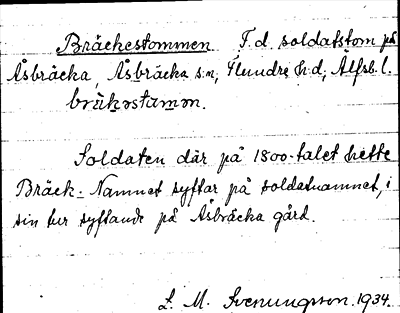 Bräckestommen F.d. soldatstom på
Åsbräcka, Åsbräcka s:n, Flundre h:d, Älfsb. l.
brækᵊstɷmᵊn.
Soldaten där på 1800-talet hette
Bräck. Namnet syftar på soldatnamnet, i
sin tur syftande på Åsbräcka gård.
L. M. Svenungsson. 1934.